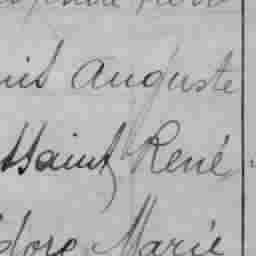 uis Auguste
ssaint René
dore Marie